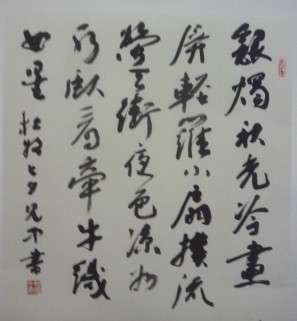 銀燭秋光冷畫
屏輕羅小扇撲流
螢天街夜色涼如
水臥看牽牛織
女星 杜牧七夕 書